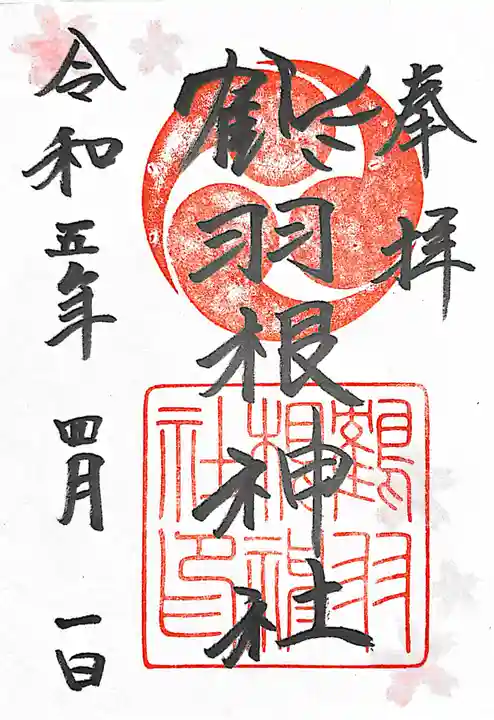 奉拝
鶴羽根神社
令和五年 四月 一日
鶴羽
根神
社印